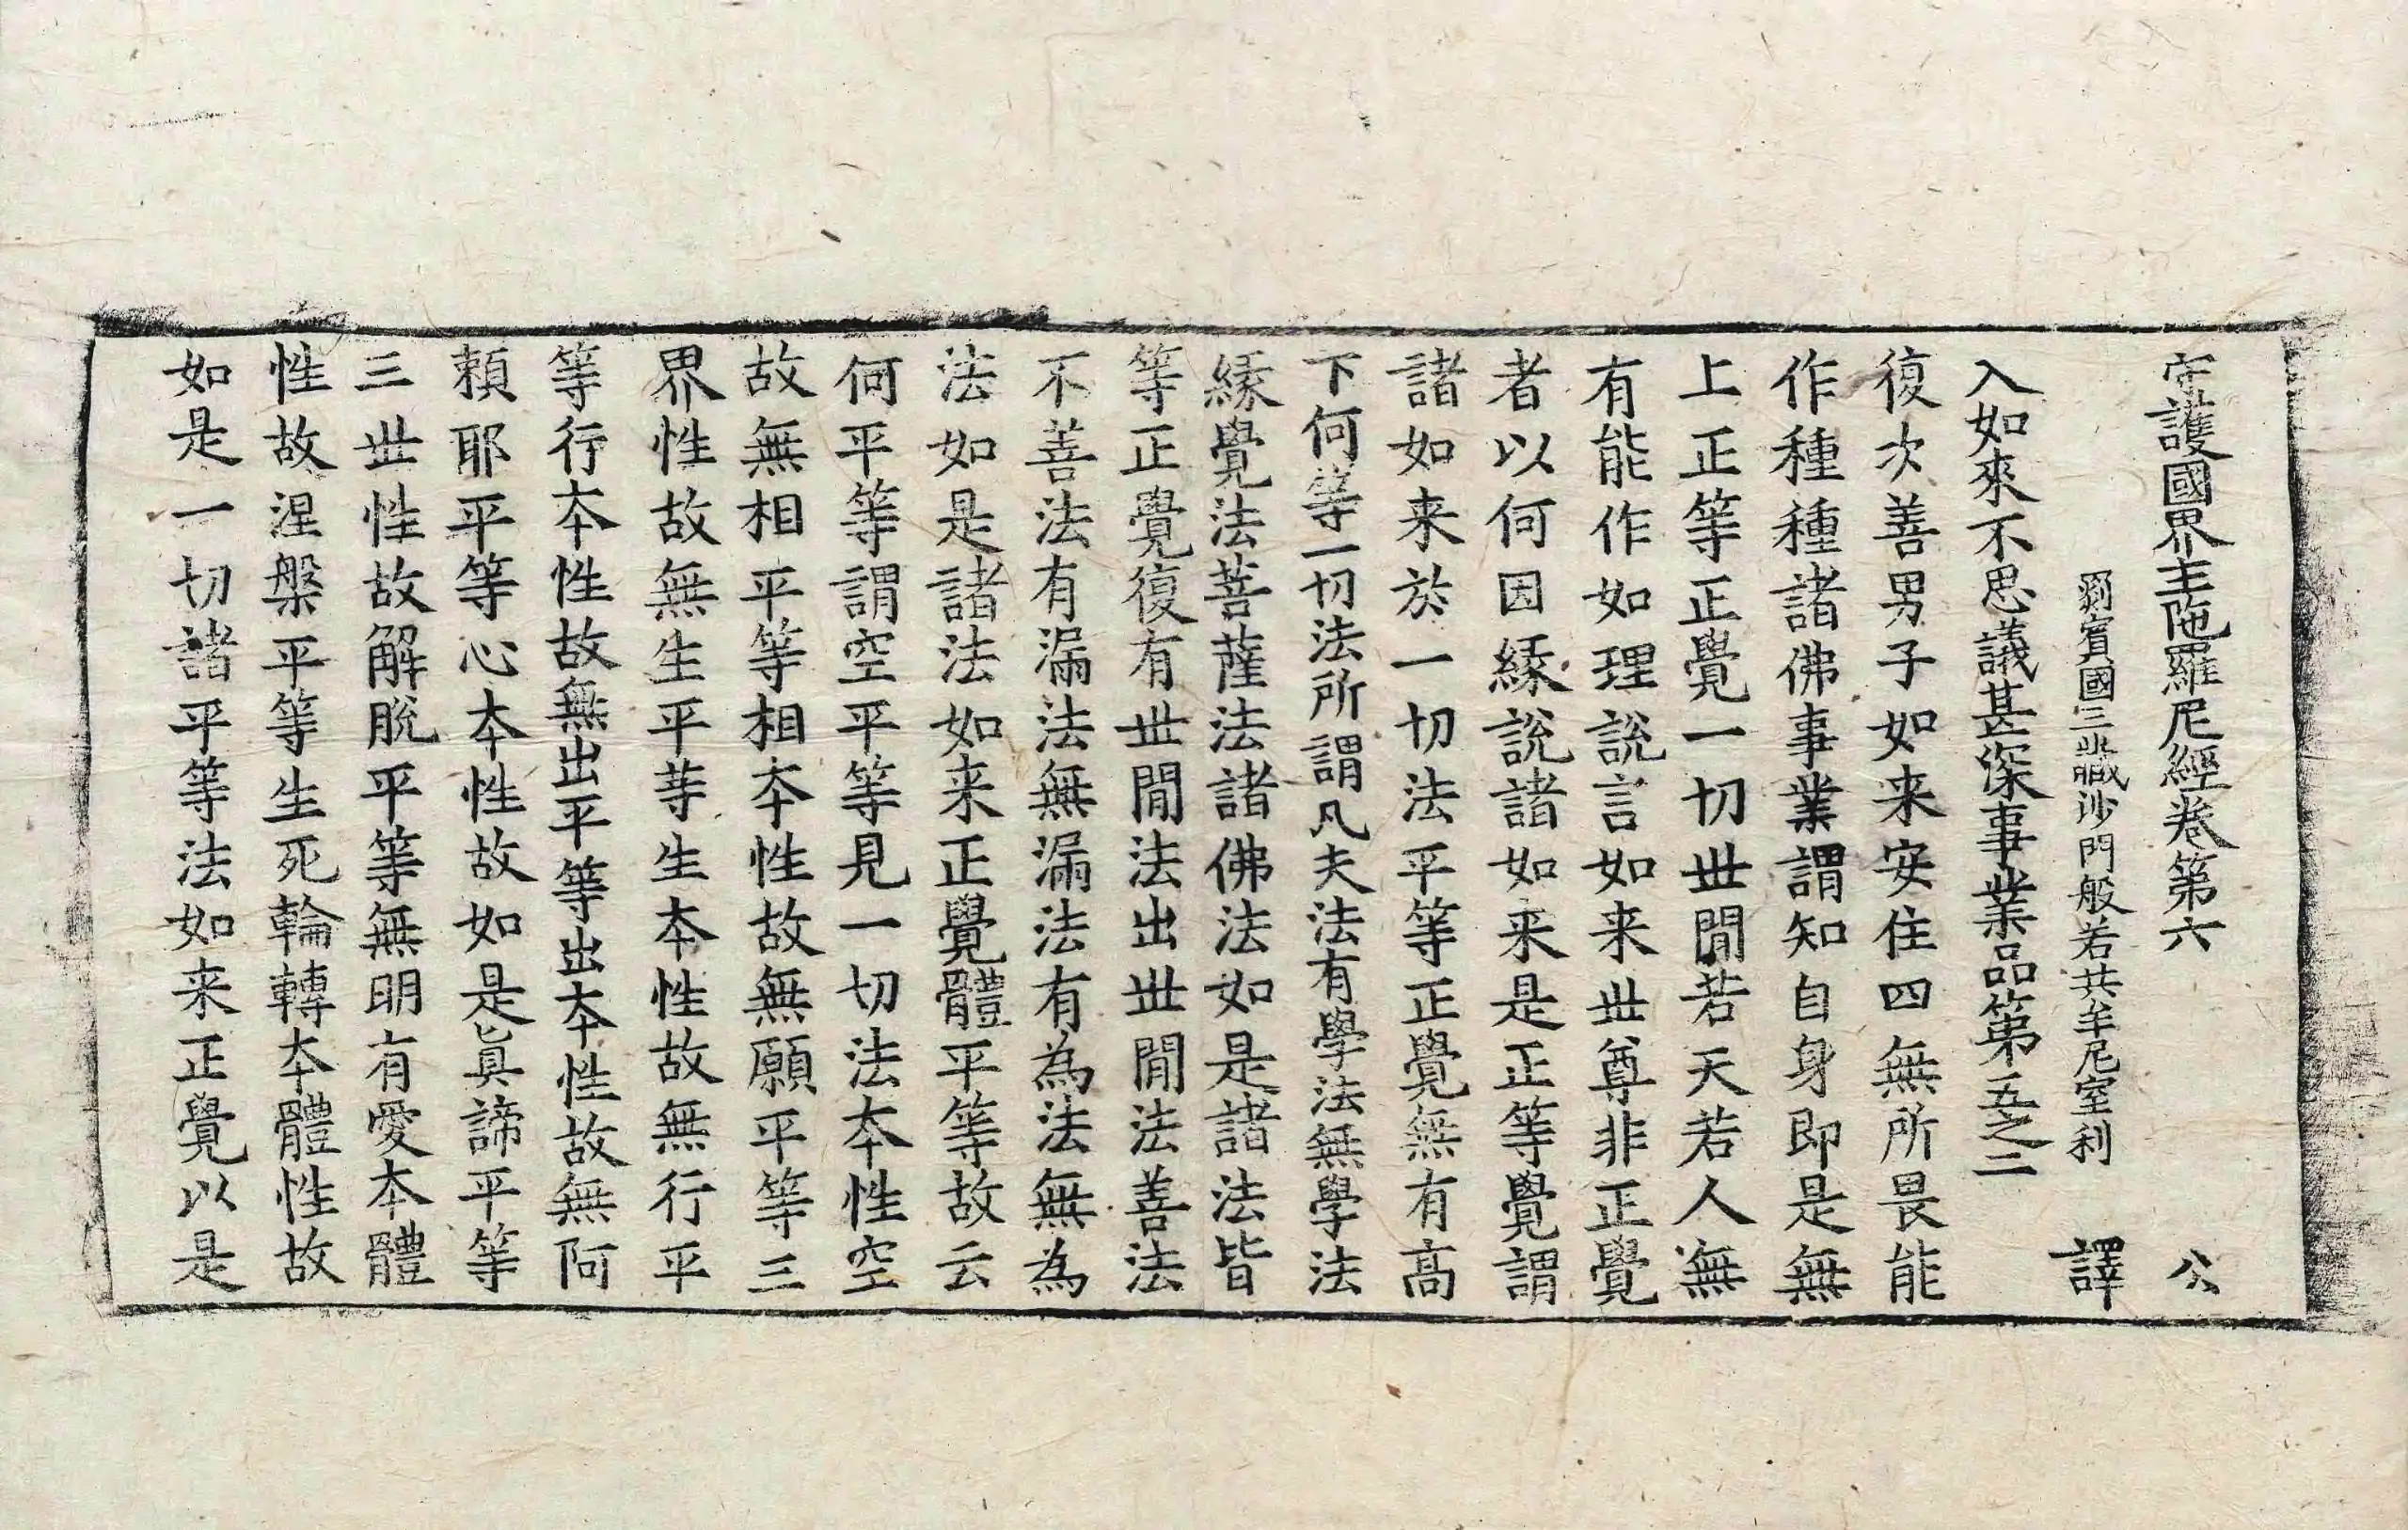 守護國界主陁羅尼經卷第六 公
罽賓國三藏沙門般若共牟尼室利 譯
入如來不思議甚深事業品第五之二
復次善男子如来安住四無所畏能
作種種諸佛事業謂知自身即是無
上正等正覺一切丗閒若天若人無
有能作如理說言如来丗尊非正覺
者以何因緣說諸如来是正等覺謂
諸如来於一切法平等正覺無有髙
下何等一切法所謂凡夫法有學法無學法
緣覺法菩薩法諸佛法如是諸法皆
等正覺復有丗閒法出丗閒法善法
不善法有漏法無漏法有為法無為
法如是諸法如来正覺體平等故云
何平等謂空平等見一切法本性空
故無相平等相本性故無願平等三
界性故無生平等生本性故無行平
等行本性故無出平等出本性故無阿
頼耶平等心本性故如是眞諦平等
三丗性故解脫平等無明有愛本體
性故涅槃平等生死輪轉本體性故
如是一切諸平等法如来正覺以是